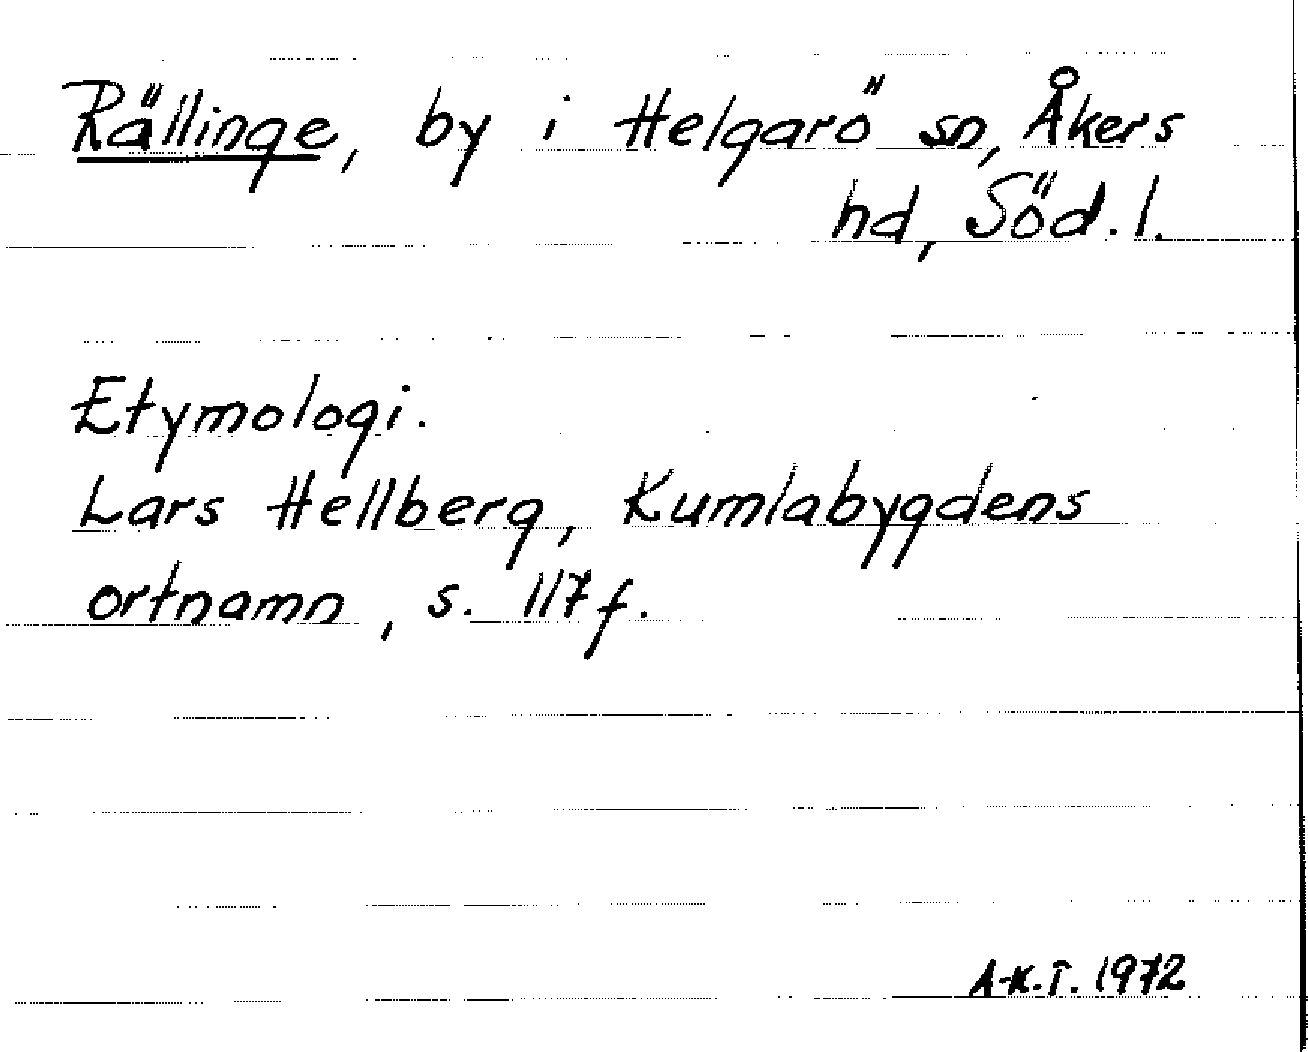 Rällinge, by i Helgarö sn, Åkers
hd, Söd. l.
Etymologi.
Lars Hellberg, Kumlabygdens
ortnamn, s. 117 f.
A-K.T. 1972